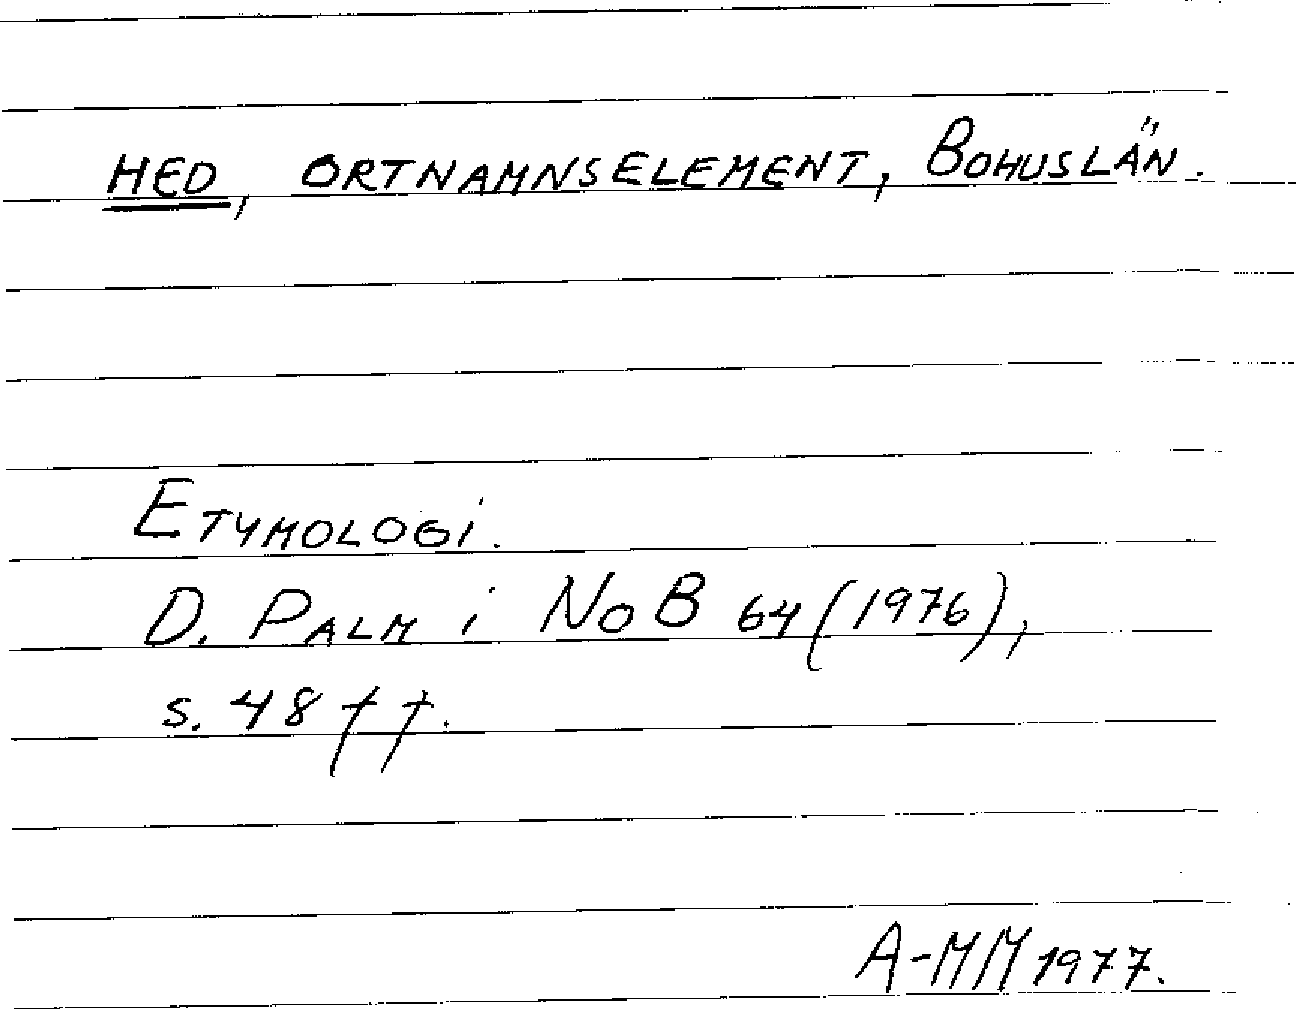 HED, ORTNAMNSELEMENT, BOHUSLÄN.
ETYMOLOGI.
D. PALM i NoB 64 (1976),
s. 48 ff.
A-MM 1977.